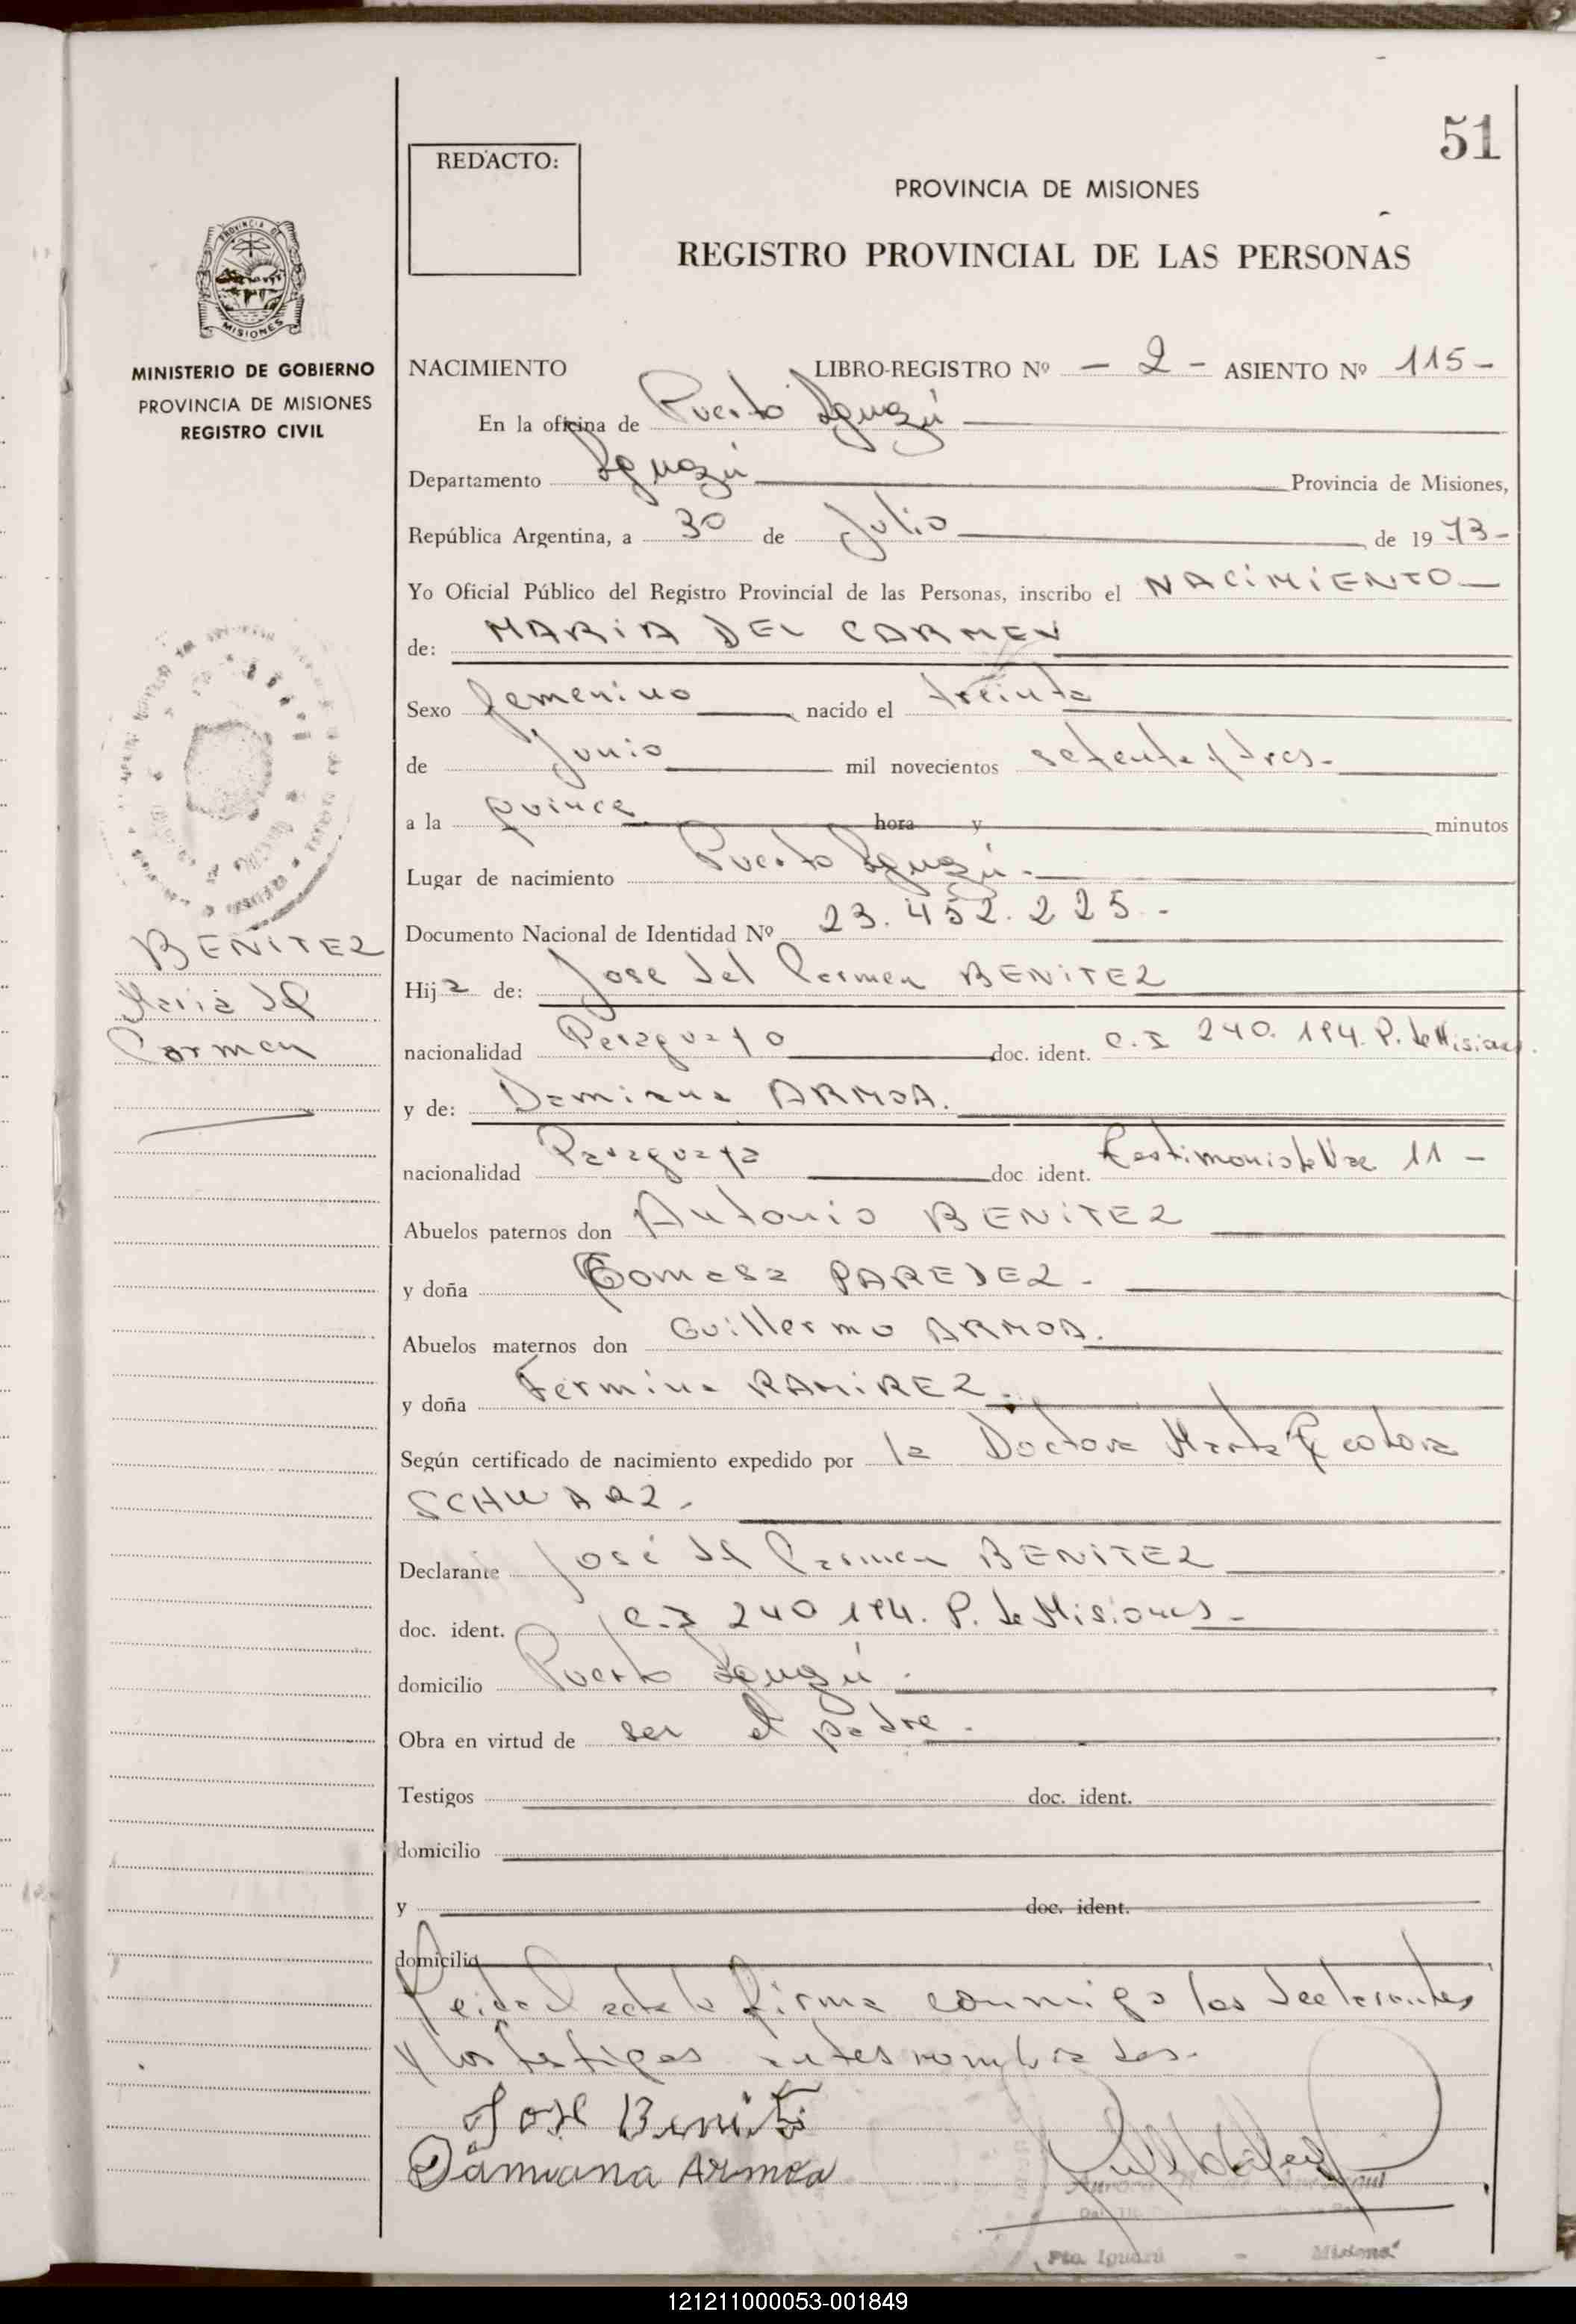 51
REDACTO:
PROVINCIA DE MISIONES
REGISTRO PROVINCIAL DE LAS PERSONAS
PROVINCIA DE
MISIONES
MINISTERIO DE GOBIERNO
PROVINCIA DE MISIONES
REGISTRO CIVIL
BENITEZ
Maria del
Carmen
NACIMIENTO LIBRO-REGISTRO Nº - 2 - ASIENTO Nº 115 -
En la oficina de Puerto Iguazú
Departamento Iguazú Provincia de Misiones,
República Argentina, a 30 de Julio de 1973-
Yo Oficial Público del Registro Provincial de las Personas, inscribo el NACIMIENTO
de: MARIA DEL CARMEN
Sexo femenino nacido el treinta
de Junio mil novecientos setenta y tres.
a la quince hora y minutos
Lugar de nacimiento Puerto Iguazú.
Documento Nacional de Identidad Nº 23.452.225.-
Hija de: Jose del Carmen BENITEZ
nacionalidad Paraguayo doc. ident. C.I 240.194. P. de Misiones.
y de: Damiana ARMOA.
nacionalidad Paraguaya doc. ident. 11 -
Abuelos paternos don Antonio BENITEZ
y doña Tomasa PAREDEZ.
Abuelos maternos don Guillermo ARMOA.
y doña Fermina RAMIREZ.
Según certificado de nacimiento expedido por la Doctora Marta
SCHWARZ.
Declarante José del Carmen BENITEZ
doc. ident. C.I 240 194. P. de Misiones
domicilio Puerto Iguazú.
Obra en virtud de ser el padre.
Testigos doc. ident.
domicilio
y doc. ident.
domicilio
Leida el acta la firma conmigo los declarantes
y los testigos antes nombrados.
Jose Benitez
Damiana Armoa
Pto. Iguazú - Misiones
121211000053-001849